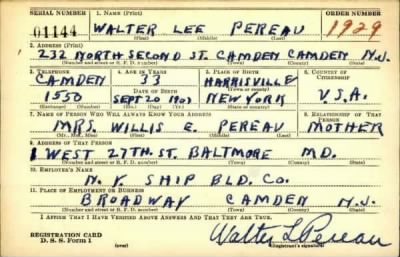 SERIAL NUMBER 1. NAME (Print) ORDER NUMBER
01144 WALTER LEE PEREAU 1929
(First) (Middle) (Last)
2. ADDRESS (Print)
232 NORTH SECOND ST. CAMDEN CAMDEN N.J.
(Number and street or R. F. D. number) (Town) (County) (State)
3. TELEPHONE 4. AGE IN YEARS 5. PLACE OF BIRTH 6. COUNTRY OF CITIZENSHIP
CAMDEN 33 HARRISVILLE
DATE OF BIRTH (Town or county)
1550 SEPT 20 1907 NEW YORK U.S.A.
(Mo.) (Day) (Yr.) (State or country)
7. NAME OF PERSON WHO WILL ALWAYS KNOW YOUR ADDRESS 8. RELATIONSHIP OF THAT PERSON
MRS. WILLIS E. PEREAU MOTHER
(Mr., Mrs., Miss) (First) (Middle) (Last)
9. ADDRESS OF THAT PERSON
1 WEST 27TH. ST. BALTMORE MD.
(Number and street or R. F. D. number) (Town) (County) (State)
10. EMPLOYER'S NAME
N.Y SHIP BLD. CO.
11. PLACE OF EMPLOYMENT OR BUSINESS
BROADWAY CAMDEN N.J.
(Number and street or R. F. D. number) (Town) (County) (State)
I AFFIRM THAT I HAVE VERIFIED ABOVE ANSWERS AND THAT THEY ARE TRUE.
REGISTRATION CARD
D. S. S. Form 1 (over) Walter L Pereau
(Registrant's signature)